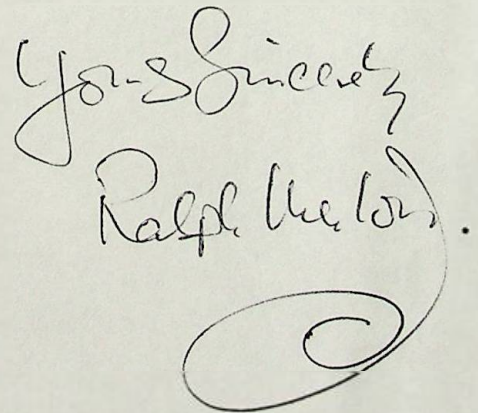 Yours Sincerely
Ralph